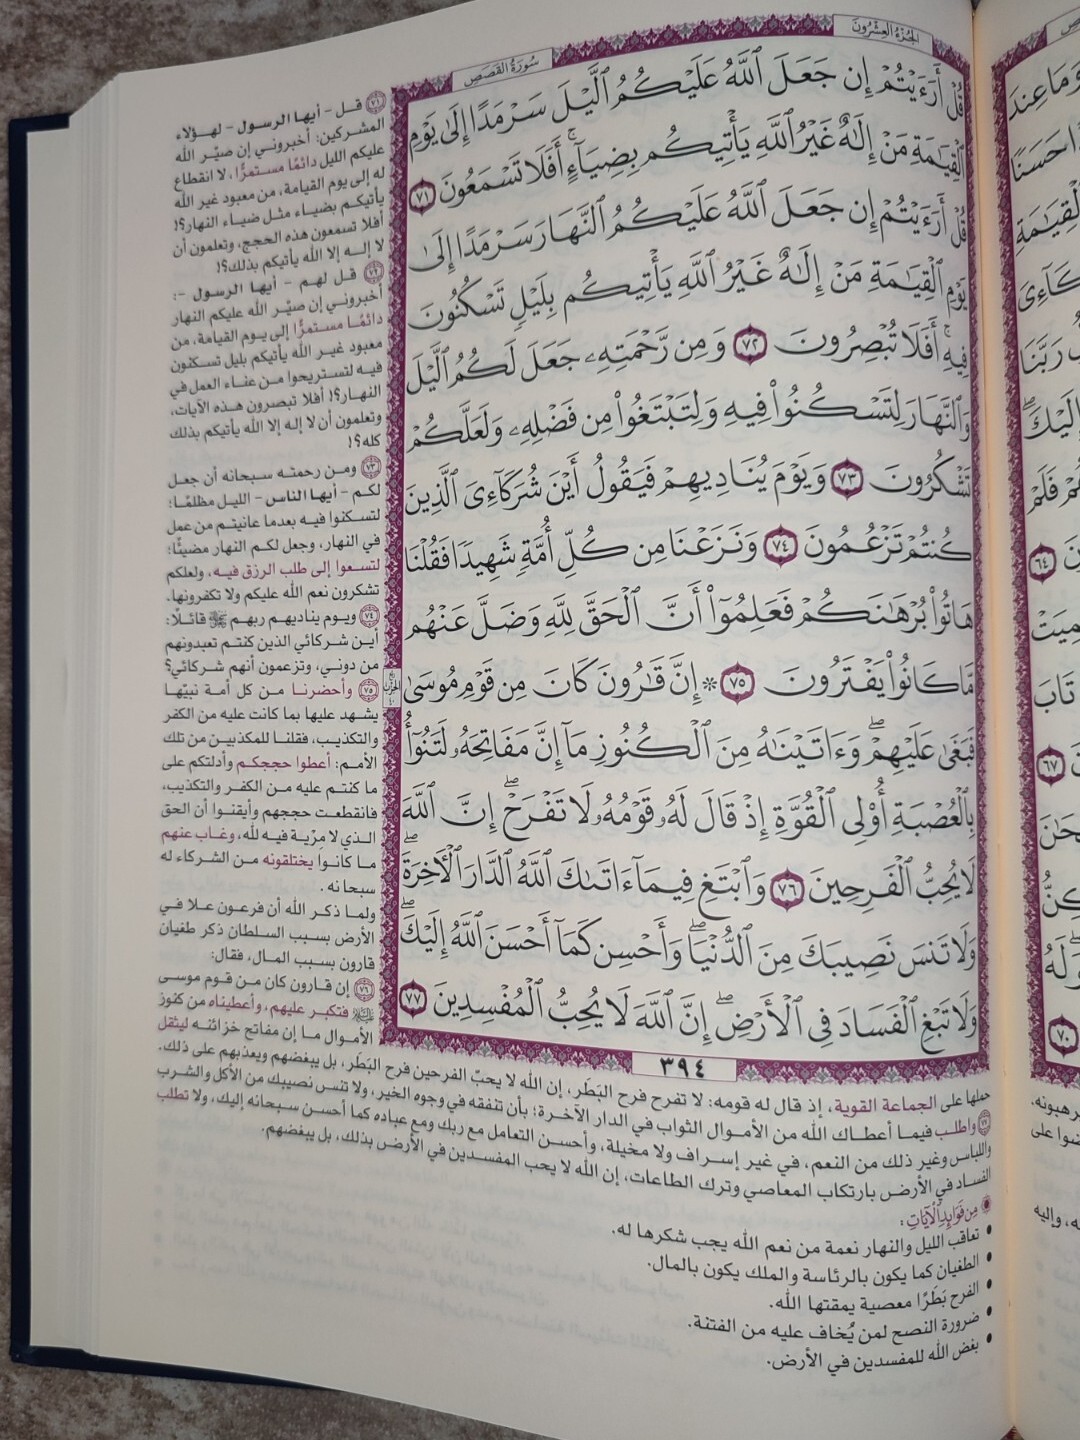 الجزء العشرون
سورة القصص
قُلْ أَرَءَيْتُمْ إِن جَعَلَ ٱللَّهُ عَلَيْكُمُ ٱلَّيْلَ سَرْمَدًا إِلَىٰ يَوْمِ
ٱلْقِيَٰمَةِ مَنْ إِلَٰهٌ غَيْرُ ٱللَّهِ يَأْتِيكُم بِضِيَآءٍ ۖ أَفَلَا تَسْمَعُونَ ٧١
قُلْ أَرَءَيْتُمْ إِن جَعَلَ ٱللَّهُ عَلَيْكُمُ ٱلنَّهَارَ سَرْمَدًا إِلَىٰ
يَوْمِ ٱلْقِيَٰمَةِ مَنْ إِلَٰهٌ غَيْرُ ٱللَّهِ يَأْتِيكُم بِلَيْلٍ تَسْكُنُونَ
فِيهِ ۖ أَفَلَا تُبْصِرُونَ ٧٢ وَمِن رَّحْمَتِهِۦ جَعَلَ لَكُمُ ٱلَّيْلَ
وَٱلنَّهَارَ لِتَسْكُنُوا۟ فِيهِ وَلِتَبْتَغُوا۟ مِن فَضْلِهِۦ وَلَعَلَّكُمْ
تَشْكُرُونَ ٧٣ وَيَوْمَ يُنَادِيهِمْ فَيَقُولُ أَيْنَ شُرَكَآءِىَ ٱلَّذِينَ
كُنتُمْ تَزْعُمُونَ ٧٤ وَنَزَعْنَا مِن كُلِّ أُمَّةٍ شَهِيدًا فَقُلْنَا
هَاتُوا۟ بُرْهَٰنَكُمْ فَعَلِمُوٓا۟ أَنَّ ٱلْحَقَّ لِلَّهِ وَضَلَّ عَنْهُم
مَّا كَانُوا۟ يَفْتَرُونَ ٧٥ ۞ إِنَّ قَٰرُونَ كَانَ مِن قَوْمِ مُوسَىٰ
فَبَغَىٰ عَلَيْهِمْ ۖ وَءَاتَيْنَٰهُ مِنَ ٱلْكُنُوزِ مَآ إِنَّ مَفَاتِحَهُۥ لَتَنُوٓأُ
بِٱلْعُصْبَةِ أُو۟لِى ٱلْقُوَّةِ إِذْ قَالَ لَهُۥ قَوْمُهُۥ لَا تَفْرَحْ ۖ إِنَّ ٱللَّهَ
لَا يُحِبُّ ٱلْفَرِحِينَ ٧٦ وَٱبْتَغِ فِيمَآ ءَاتَىٰكَ ٱللَّهُ ٱلدَّارَ ٱلْءَاخِرَةَ ۖ
وَلَا تَنسَ نَصِيبَكَ مِنَ ٱلدُّنْيَا ۖ وَأَحْسِن كَمَآ أَحْسَنَ ٱللَّهُ إِلَيْكَ ۖ
وَلَا تَبْغِ ٱلْفَسَادَ فِى ٱلْأَرْضِ ۖ إِنَّ ٱللَّهَ لَا يُحِبُّ ٱلْمُفْسِدِينَ ٧٧
٣٩٤
٧١ قل - أيها الرسول - لهؤلاء
المشركين: أخبروني إن صيّر الله
عليكم الليل دائمًا مستمرًّا، لا انقطاع
له إلى يوم القيامة، من معبود غير الله
يأتيكم بضياء مثل ضياء النهار؟!
أفلا تسمعون هذه الحجج، وتعلمون أن
لا إله إلا الله يأتيكم بذلك؟!
٧٢ قل لهم - أيها الرسول -:
أخبروني إن صيّر الله عليكم النهار
دائمًا مستمرًّا إلى يوم القيامة، من
معبود غير الله يأتيكم بليل تسكنون
فيه لتستريحوا من عناء العمل في
النهار؟! أفلا تبصرون هذه الآيات،
وتعلمون أن لا إله إلا الله يأتيكم بذلك
كله؟!
٧٣ ومن رحمته سبحانه أن جعل
لكم - أيها الناس - الليل مظلمًا؛
لتسكنوا فيه بعدما عانيتم من عمل
في النهار، وجعل لكم النهار مضيئًا؛
لتسعوا إلى طلب الرزق فيه، ولعلكم
تشكرون نعم الله عليكم ولا تكفرونها.
٧٤ ويوم يناديهم ربهم ﷻ قائلًا:
أين شركائي الذين كنتم تعبدونهم
من دوني، وتزعمون أنهم شركائي؟
٧٥ وأحضرنا من كل أمة نبيّها
يشهد عليها بما كانت عليه من الكفر
والتكذيب، فقلنا للمكذبين من تلك
الأمم: أعطوا حججكم وأدلتكم على
ما كنتم عليه من الكفر والتكذيب،
فانقطعت حججهم وأيقنوا أن الحق
الذي لا مِرْية فيه لله، وغاب عنهم
ما كانوا يختلقونه من الشركاء له
سبحانه.
ولما ذكر الله أن فرعون علا في
الأرض بسبب السلطان ذكر طغيان
قارون بسبب المال، فقال:
٧٦ إن قارون كان من قوم موسى
فتكبر عليهم، وأعطيناه من كنوز
الأموال ما إن مفاتح خزائنه ليثقل
حملها على الجماعة القوية، إذ قال له قومه: لا تفرح فرح البَطَر، إن الله لا يحبّ الفرحين فرح البَطَر، بل يبغضهم ويعذبهم على ذلك.
٧٧ واطلب فيما أعطاك الله من الأموال الثواب في الدار الآخرة؛ بأن تنفقه في وجوه الخير، ولا تنس نصيبك من الأكل والشرب
واللباس وغير ذلك من النعم، في غير إسراف ولا مخيلة، وأحسن التعامل مع ربك ومع عباده كما أحسن سبحانه إليك، ولا تطلب
الفساد في الأرض بارتكاب المعاصي وترك الطاعات، إن الله لا يحب المفسدين في الأرض بذلك، بل يبغضهم.
من فوائد الآيات:
• تعاقب الليل والنهار نعمة من نعم الله يجب شكرها له.
• الطغيان كما يكون بالرئاسة والملك يكون بالمال.
• الفرح بَطَرًا معصية يمقتها الله.
• ضرورة النصح لمن يُخاف عليه من الفتنة.
• بغض الله للمفسدين في الأرض.